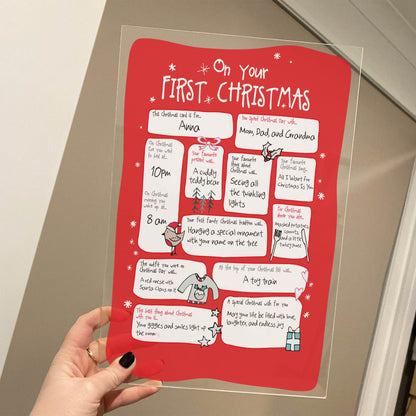 On Your
FIRST CHRISTMAS
This Christmas card is for...
Anna
You spent Christmas Day with...
Mom, Dad, and Grandma
On Christmas
Eve you went
to bed at...
10pm
On Christmas
morning you
woke up at...
8 am
Your favorite
present was...
A cuddly
teddy bear
Your favorite
thing about
Christmas was...
Seeing all
the twinkling
lights
Your favorite
Christmas song...
All I Want for
Christmas Is You
For Christmas
dinner you ate...
Mashed potatoes,
carrots,
and a little
turkey
Your first family Christmas tradition was...
Hanging a special ornament
with your name on the tree
The outfit you wore on
Christmas Day was...
A red onesie with
Santa Claus on it
At the top of your Christmas list was...
A toy train
The best thing about Christmas
with you is...
Your giggles and smiles light up
the room
A special Christmas wish for you
May your life be filled with love,
laughter, and endless joy